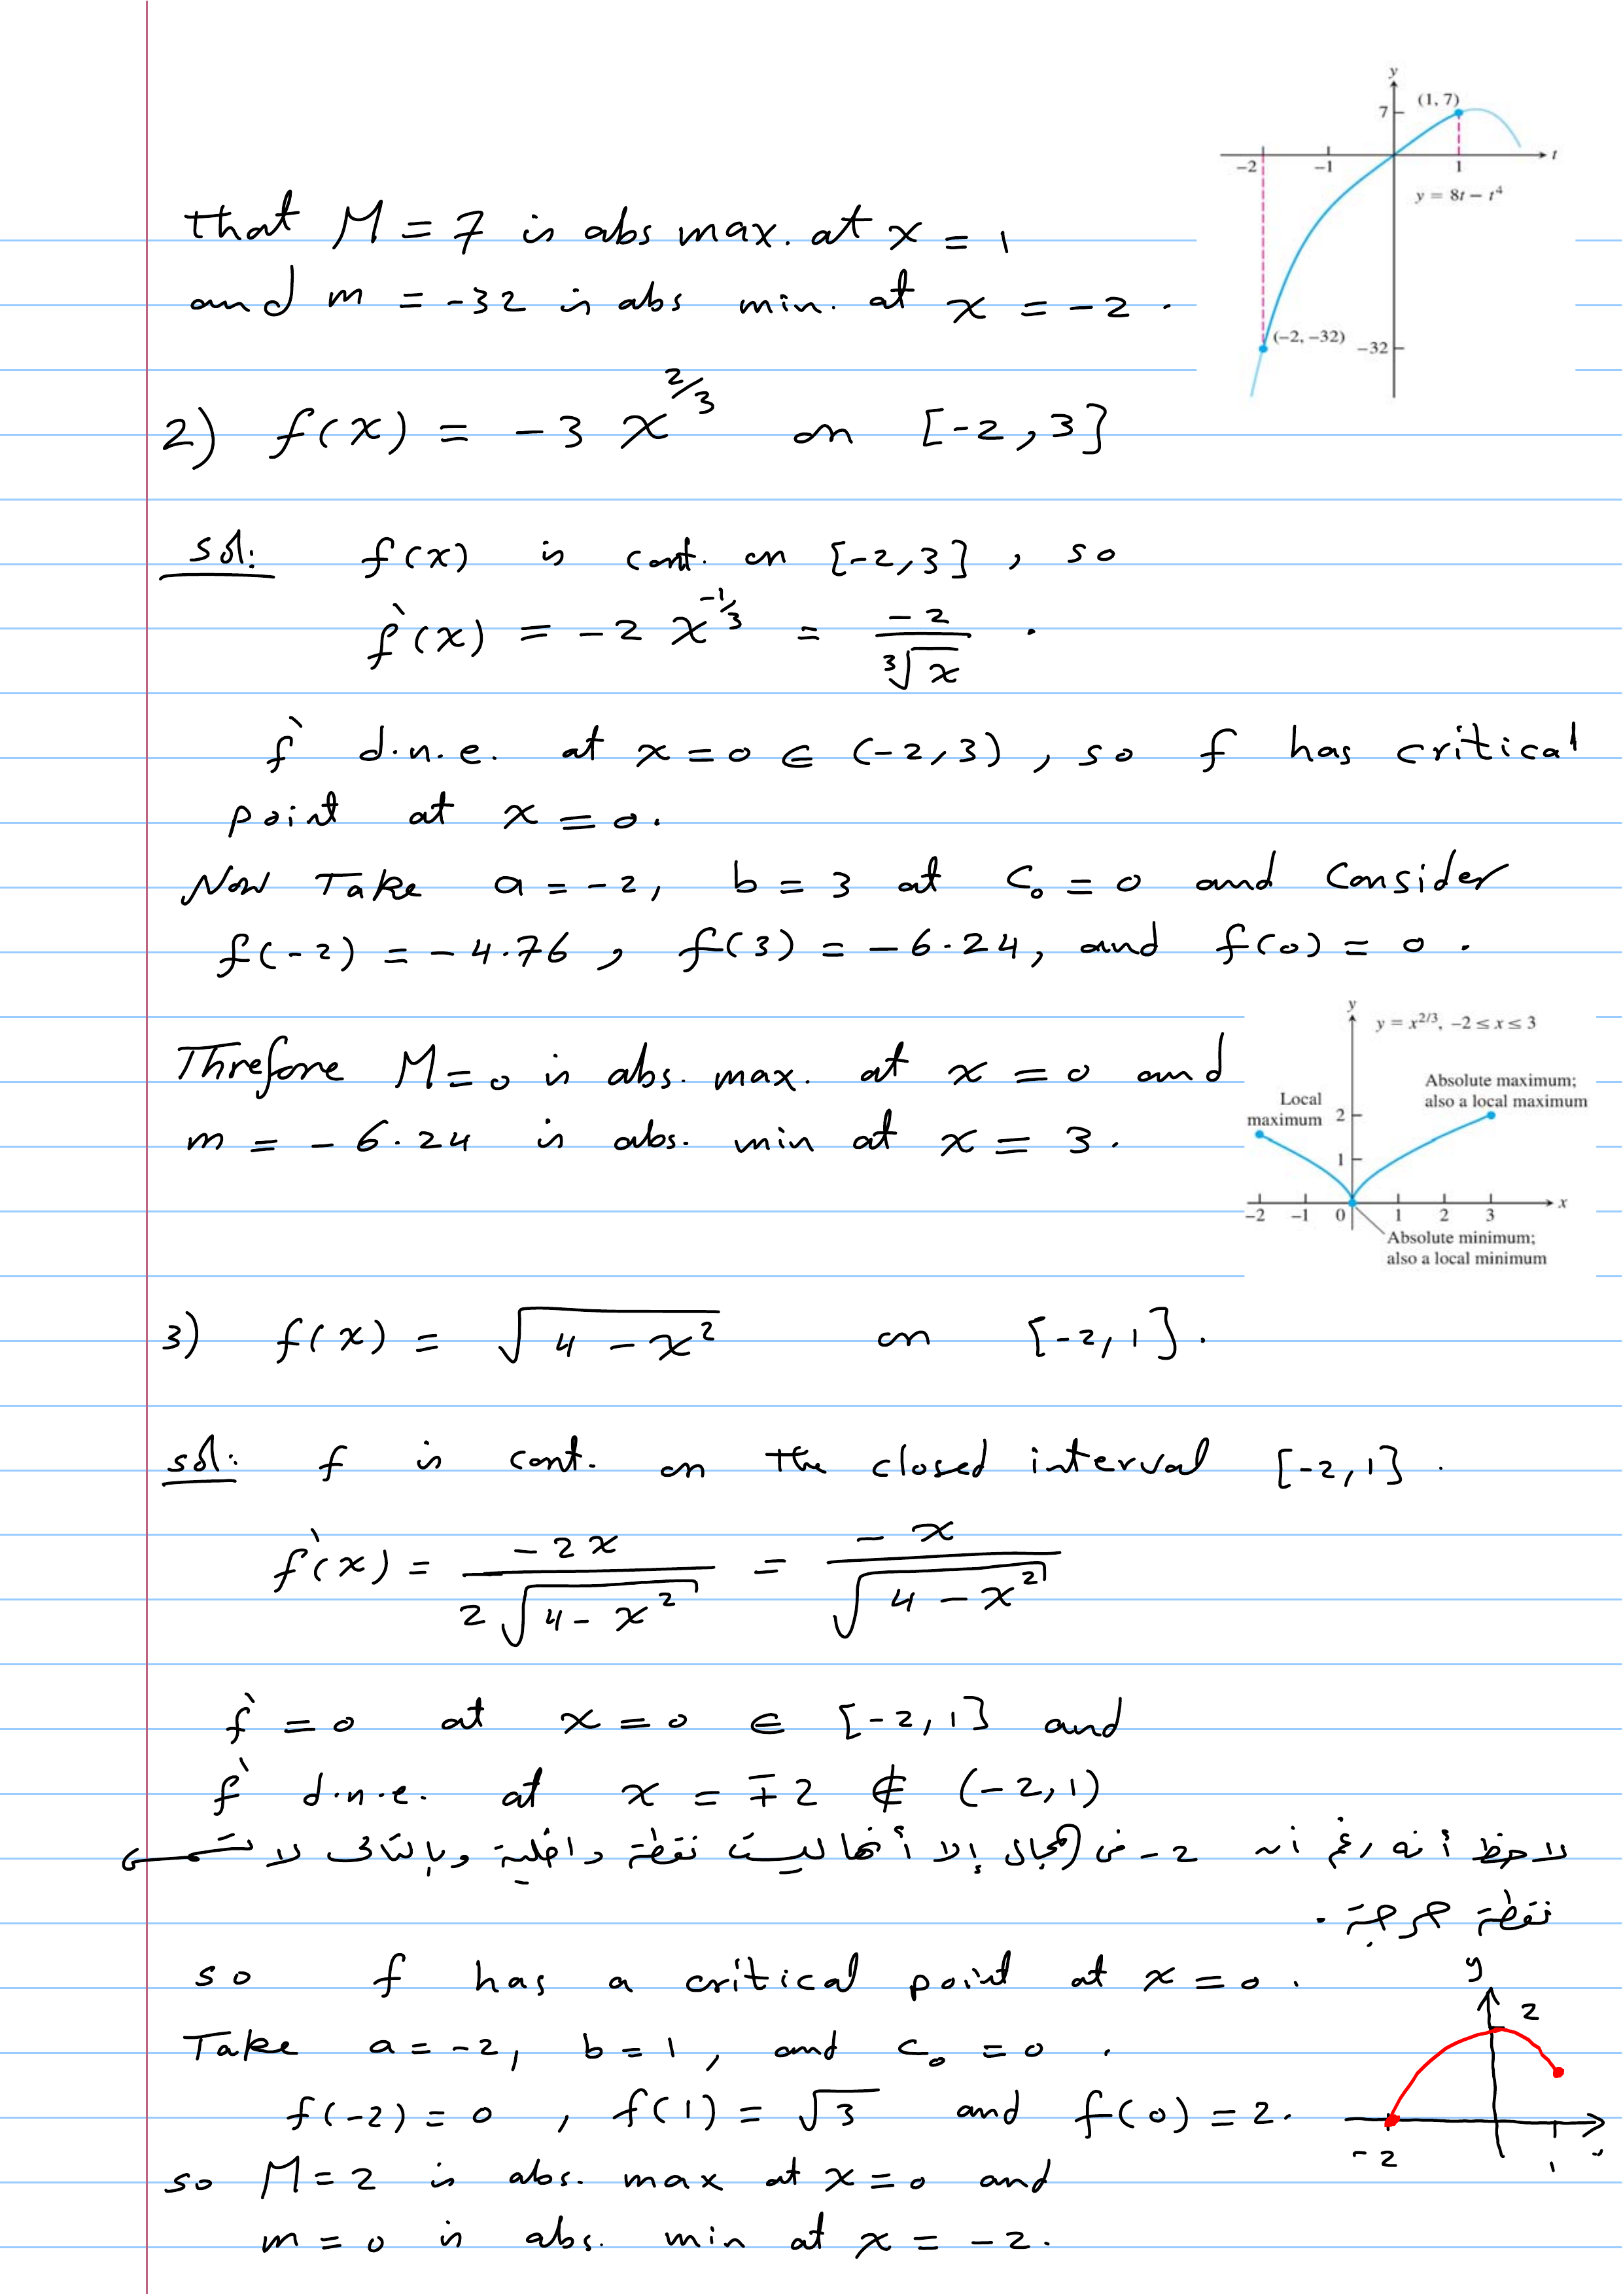 y
(1, 7)
7
-2 -1 1 t
y = 8t − t⁴
(−2, −32) −32
that M = 7 is abs max. at x = 1
and m = -32 is abs min. at x = -2 .
2) f(x) = -3 x^{2/3} on [-2,3]
sol: f(x) is cont. on [-2,3] , so
f`(x) = -2 x^{-1/3} = -2/∛x .
f` d.n.e. at x=0 ∈ (-2,3) , so f has critical
point at x = 0.
Now Take a = -2, b = 3 at c₀ = 0 and Consider
f(-2) = -4.76 , f(3) = -6.24, and f(0) = 0 .
Threfore M=0 is abs. max. at x = 0 and
m = -6.24 is abs. min at x = 3 .
y
y = x^{2/3}, −2 ≤ x ≤ 3
Absolute maximum;
also a local maximum
Local
maximum
2
1
−2 −1 0 1 2 3 x
Absolute minimum;
also a local minimum
3) f(x) = √(4 - x²) on [-2,1] .
sol: f is cont. on the closed interval [-2,1] .
f`(x) = -2x/(2√(4-x²)) = -x/√(4-x²)
f` = 0 at x=0 ∈ [-2,1] and
f` d.n.e. at x = ∓2 ∉ (-2,1)
لاحظ أنه رغم أن -2 في المجال إلا أنها ليست نقطة داخلية وبالتالي لا تسمى
نقطة حرجة .
so f has a critical point at x = 0 .
Take a = -2, b = 1 , and c₀ = 0 .
f(-2) = 0 , f(1) = √3 and f(0) = 2.
so M=2 is abs. max at x=0 and
m = 0 is abs. min at x = -2.
y
2
-2 1